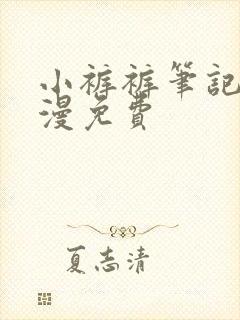 小裤裤筆記
漫免費
夏志清